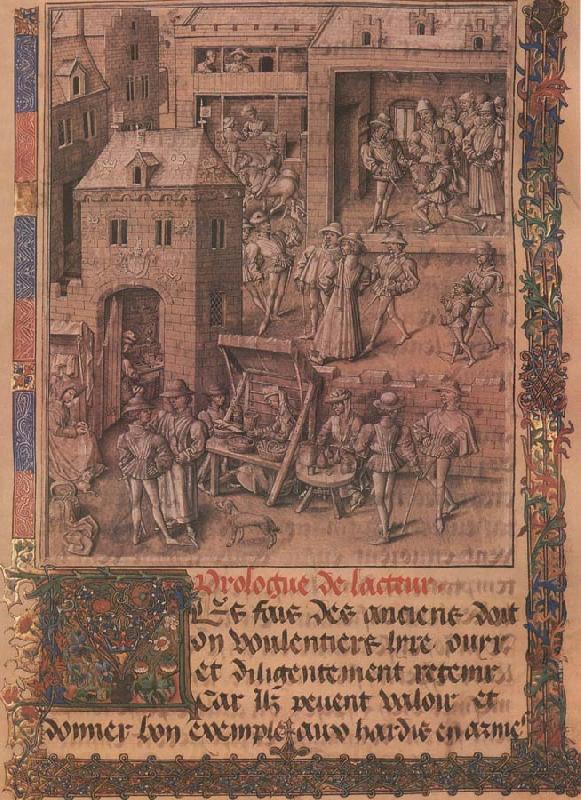 Prologue de lacteur
Les fais des anciens doit
on voulentiers lyre ouyr
et diligentement retenir
Car Ilz peuent valoir et
donner bon exemple aux hardis en armes